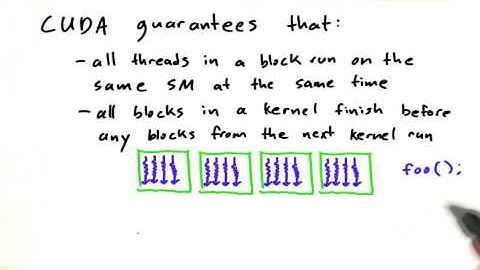 CUDA guarantees that:
- all threads in a block run on the
same SM at the same time
- all blocks in a kernel finish before
any blocks from the next kernel run
foo();